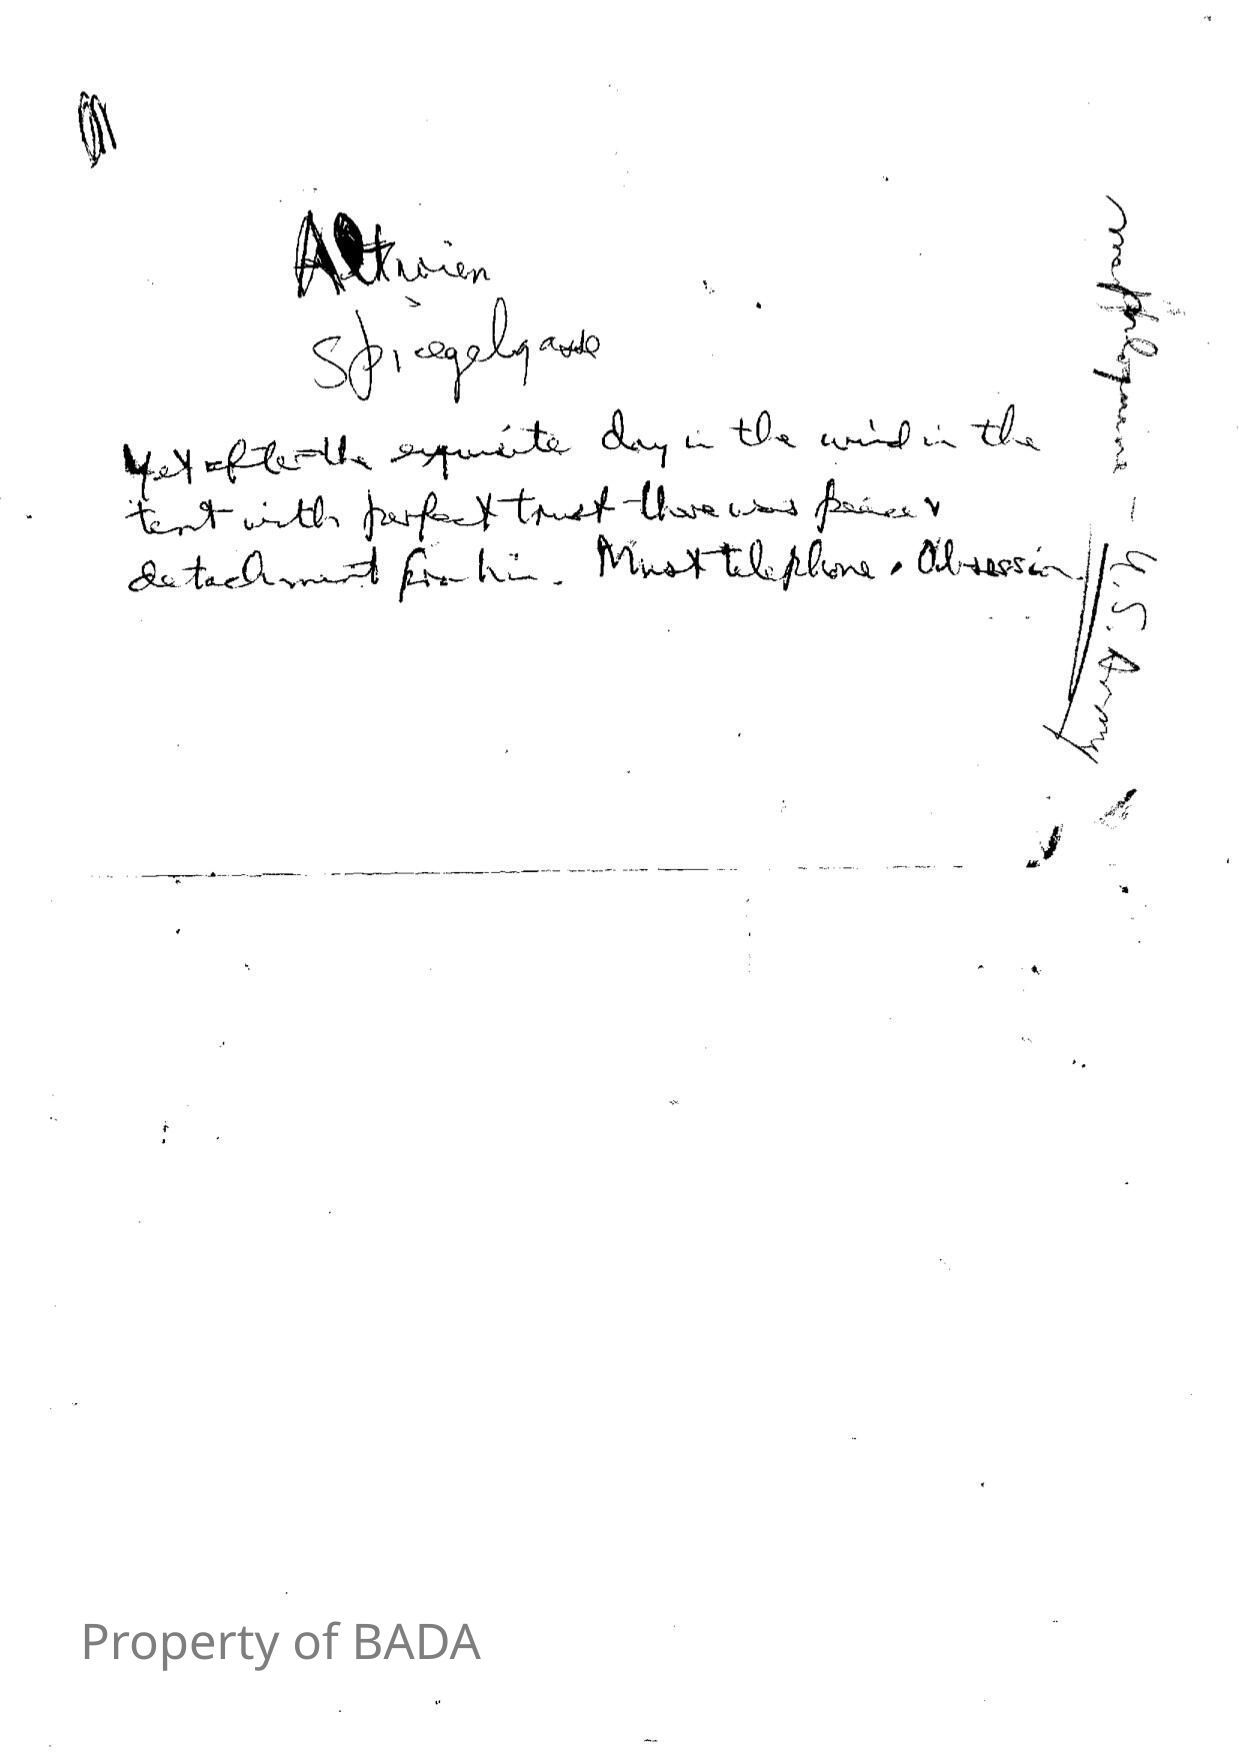 Altwien
Spiegelgasse
Yet after the exquisite day in the wind in the
tent with perfect trust there was peace &
detachment from him. Must telephone. Obsession.
U.S. Army
Property of BADA